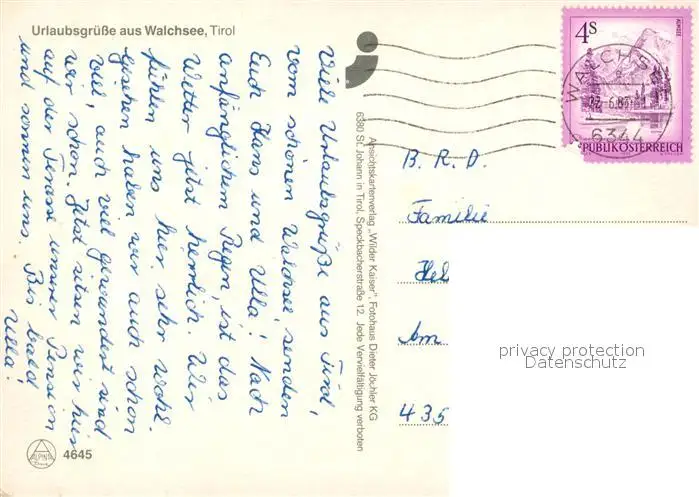 Urlaubsgrüße aus Walchsee, Tirol
Viele Urlaubsgrüße aus Tirol,
vom schönen Walchsee senden
Euch Hans und Ulla! Nach
anfänglichem Regen, ist das
Wetter jetzt herrlich. Wir
fühlen uns hier sehr wohl.
Gesehen haben wir auch schon
viel, auch viel gewandert sind
wir schon. Jetzt sitzen wir hier
auf der Terasse unserer Pension
und sonnen uns. Bis bald
Ulla!
ALPINA
4645
Ansichtskartenverlag „Wilder Kaiser“, Fotohaus Dieter Jöchler KG
6380 St. Johann in Tirol, Speckbacherstraße 12. Jede Vervielfältigung verboten
4S
ALMSEE
REPUBLIK ÖSTERREICH
WALCHSEE
6344
B. R. D.
Familie
Hel
Am
435
privacy protection
Datenschutz